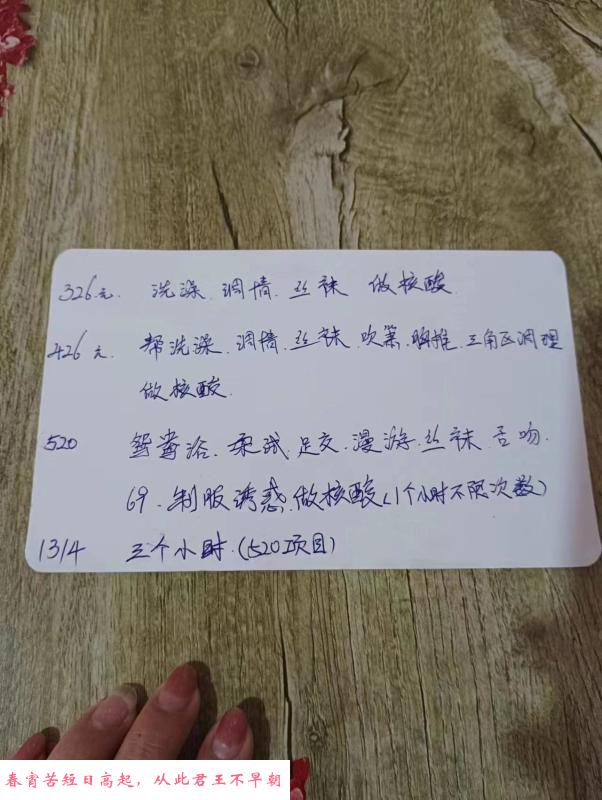 326元. 洗澡. 调情. 丝袜 做核酸.
426元. 帮洗澡. 调情. 丝袜. 吹箫. 胸推. 三角区调理
做核酸.
520 鸳鸯浴. 足交. 漫游. 丝袜. 舌吻.
69. 制服诱惑. 做核酸(1个小时不限次数)
1314 三个小时. (520项目)
春宵苦短日高起，从此君王不早朝